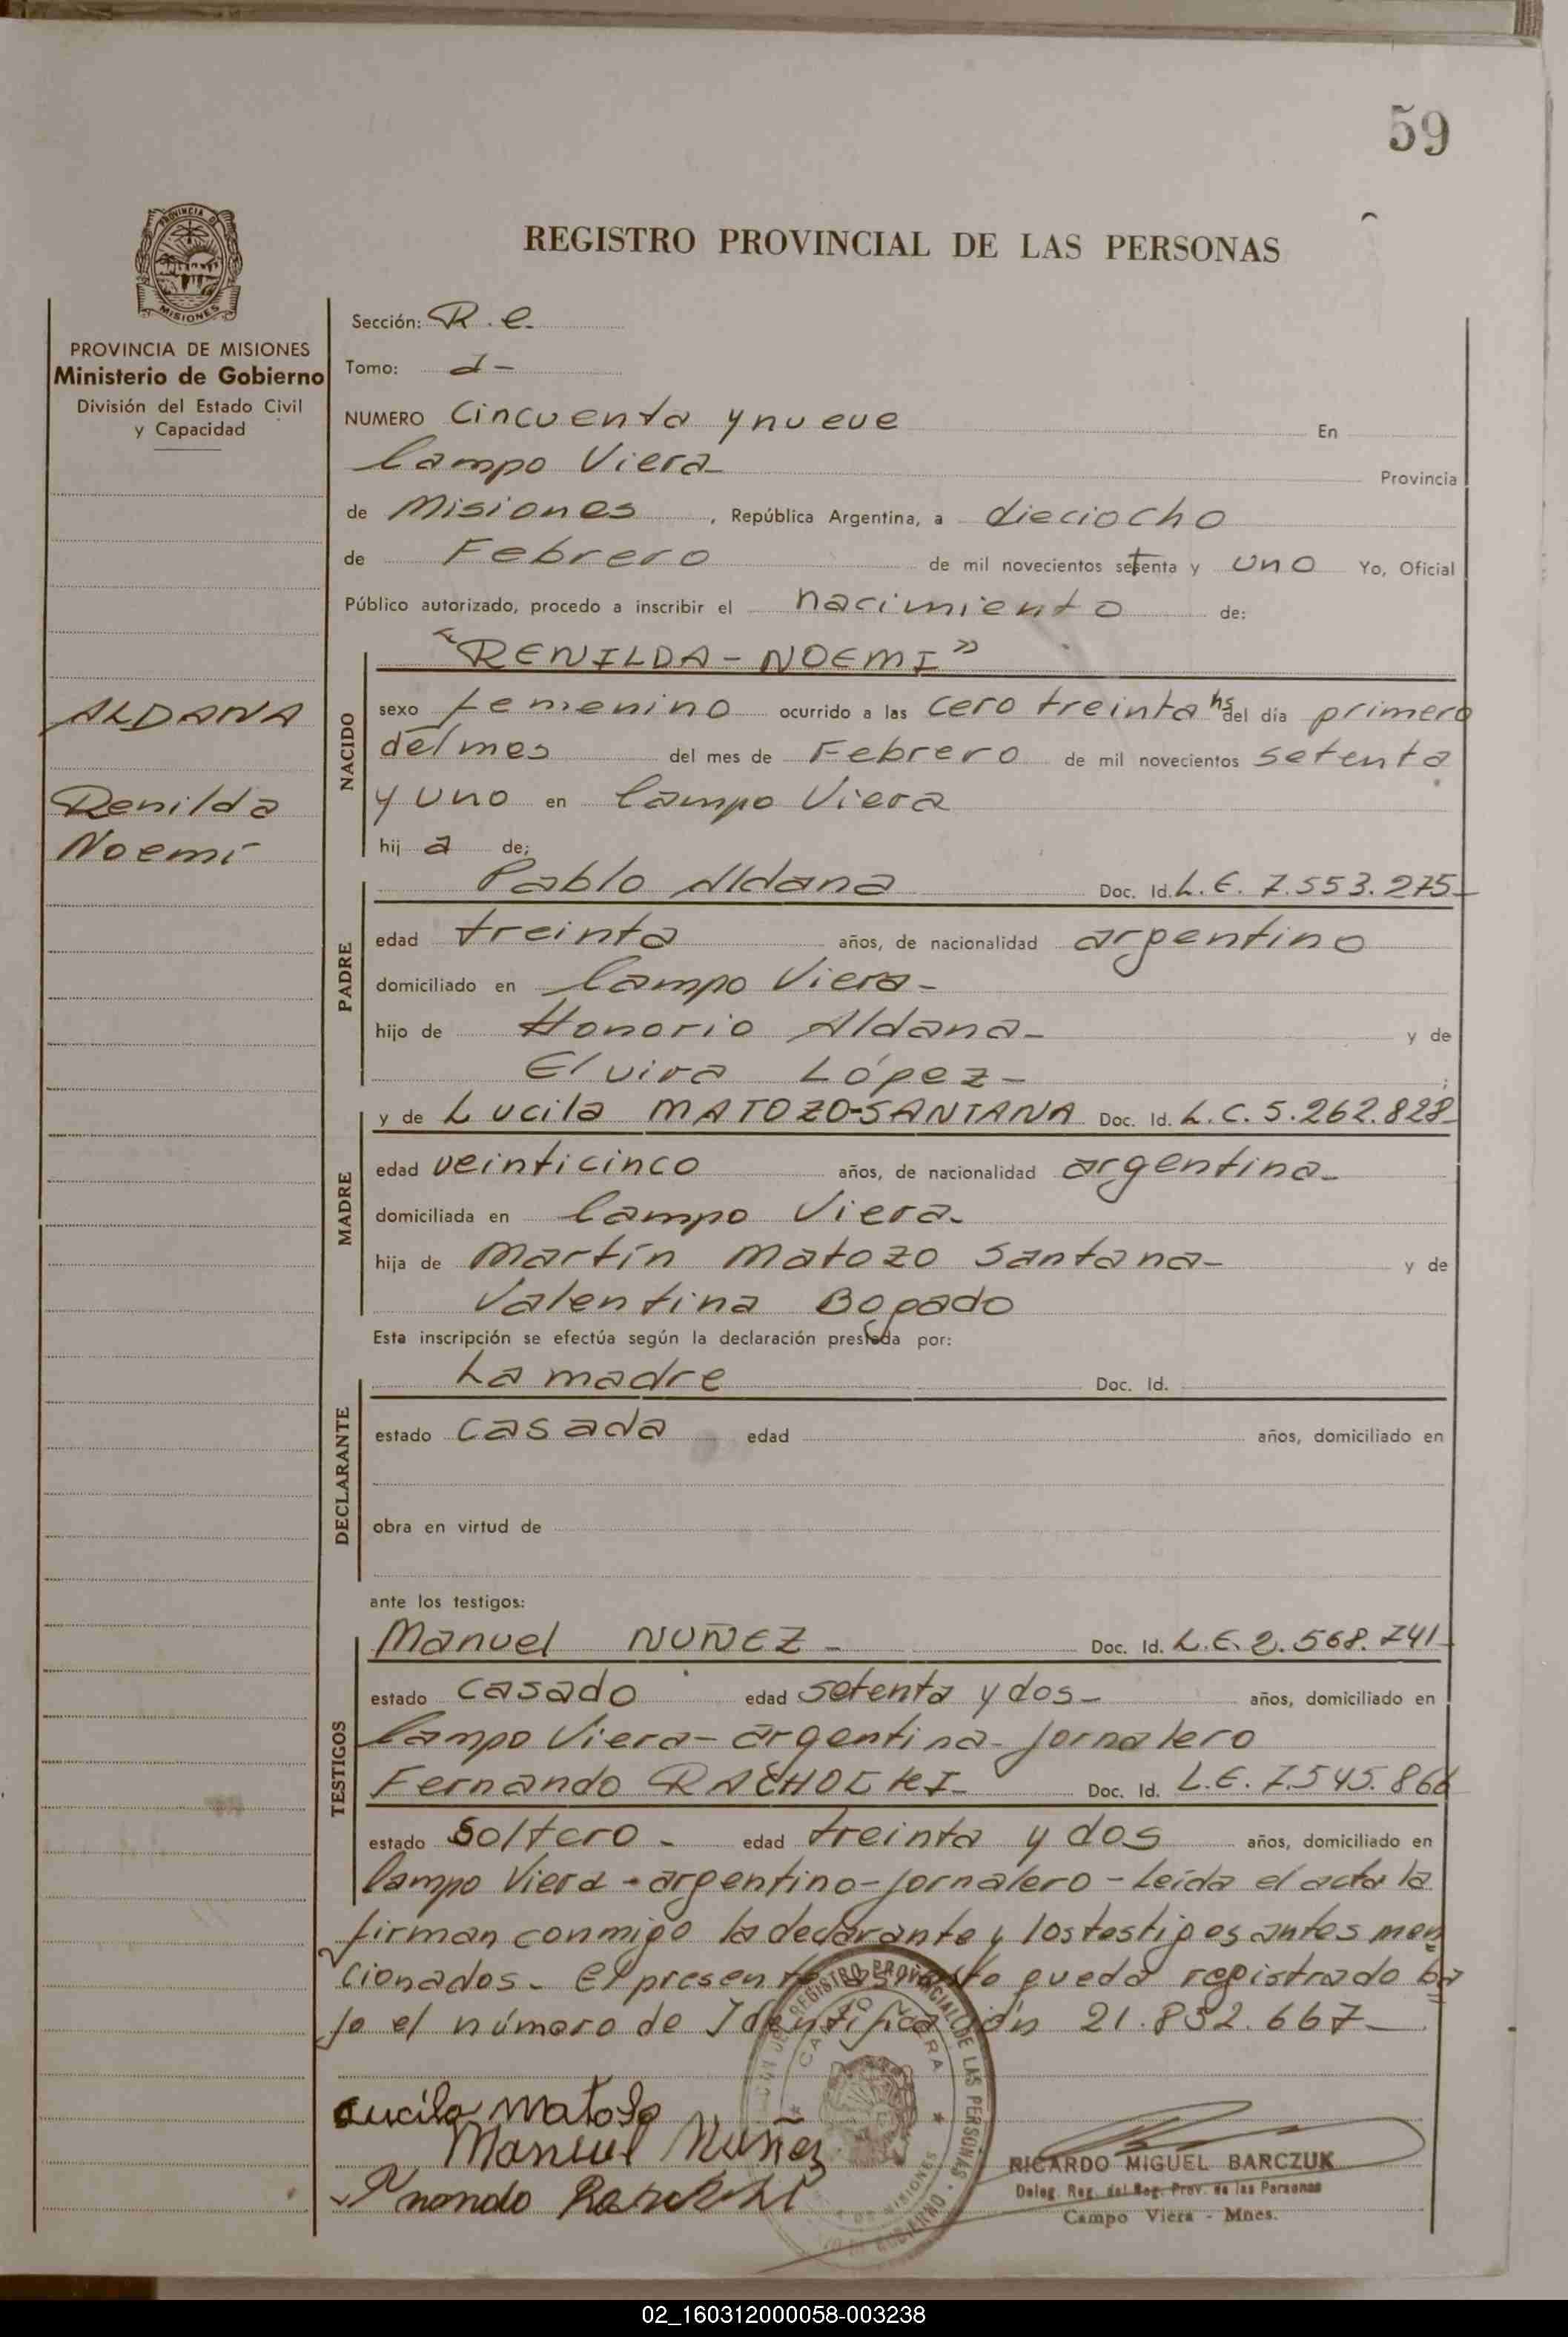 59
REGISTRO PROVINCIAL DE LAS PERSONAS
PROVINCIA DE MISIONES
PROVINCIA DE MISIONES
Ministerio de Gobierno
División del Estado Civil
y Capacidad
ALDANA
Renilda
Noemí
Sección: R. e.
Tomo:
NUMERO Cincuenta y nueve En
Campo Viera Provincia
de Misiones, República Argentina, a dieciocho
de Febrero de mil novecientos setenta y uno Yo, Oficial
Público autorizado, procedo a inscribir el nacimiento de:
"RENILDA-NOEMI"
NACIDO
sexo femenino ocurrido a las cero treinta hs del día primero
del mes del mes de Febrero de mil novecientos setenta
y uno en Campo Viera
hij a de;
PADRE
Pablo Aldana Doc. Id. L.E. 7.553.275-
edad treinta años, de nacionalidad argentino
domiciliado en Campo Viera-
hijo de Honorio Aldana- y de
Elvira López- ;
MADRE
y de Lucila MATOZO-SANTANA Doc. Id. L.C. 5.262.828-
edad veinticinco años, de nacionalidad argentina-
domiciliada en Campo Viera-
hija de Martín Matozo Santana- y de
Valentina Bogado
Esta inscripción se efectúa según la declaración prestada por:
DECLARANTE
La madre Doc. Id.
estado casada edad años, domiciliado en
obra en virtud de
ante los testigos:
TESTIGOS
Manuel NUÑEZ- Doc. Id. L.E. 2.568.741-
estado casado edad setenta y dos- años, domiciliado en
Campo Viera- argentina- jornalero
Fernando Doc. Id. L.E. 7.545.866
estado Soltero- edad treinta y dos años, domiciliado en
Campo Viera - argentino-jornalero - Leída el acta la
firman conmigo la declarante y los testigos antes men
cionados- El presente asiento queda registrado ba
jo el número de Identificación 21.832.667-
REGISTRO PROVINCIAL DE LAS PERSONAS
CAMPO VIERA
MISIONES
Lucila Matoso
Manuel Nuñez
RICARDO MIGUEL BARCZUK
Deleg. Reg. del Reg. Prov. de las Personas
Campo Viera - Mnes.
02_160312000058-003238